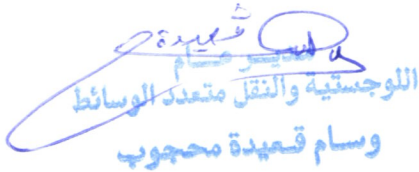 مدير عام
اللوجستية والنقل متعدد الوسائط
وسام قعيدة محجوب